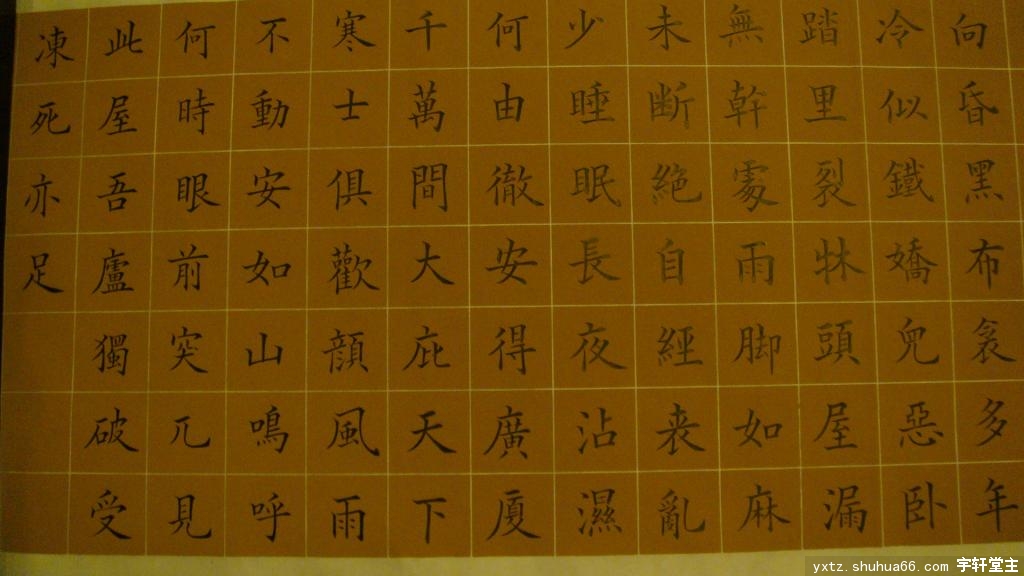 向昏黑布衾多年
冷似鐵嬌兒惡卧
踏里裂牀頭屋漏
無幹處雨脚如麻
未断絶自經丧亂
少睡眠長夜沾濕
何由徹安得廣厦
千萬間大庇天下
寒士俱歡顔風雨
不動安如山鳴呼
何時眼前突兀見
此屋吾廬獨破受
凍死亦足
yxtz.shuhua66.com 宇轩堂主